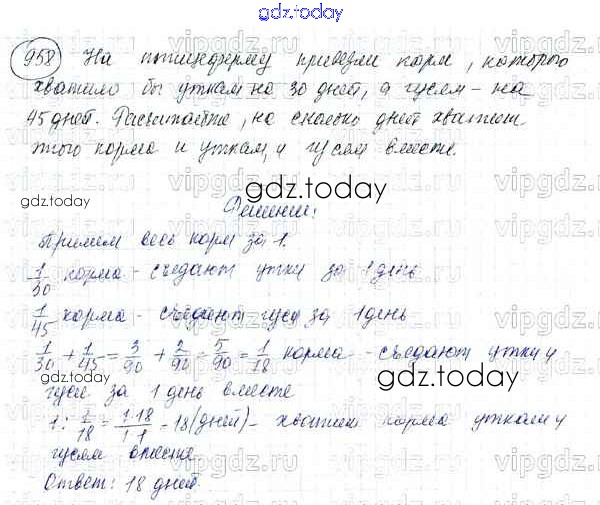 gdz.today
958 На птицеферму привезли корм, которого
хватило бы уткам на 30 дней, а гусям - на
45 дней. Рассчитайте, на сколько дней хватит
этого корма и уткам, и гусям вместе.
gdz.today
gdz.today
Решение:
Примем весь корм за 1.
1/30 корма - съедают утки за 1 день
1/45 корма - съедают гуси за 1 день
1/30 + 1/45 = 3/90 + 2/90 = 5/90 = 1/18 корма - съедают утки и
гуси за 1 день вместе
gdz.today
1 : 1/18 = 1·18/1·1 = 18 (дней) - хватит корма уткам и
гусям вместе
Ответ: 18 дней.
gdz.today